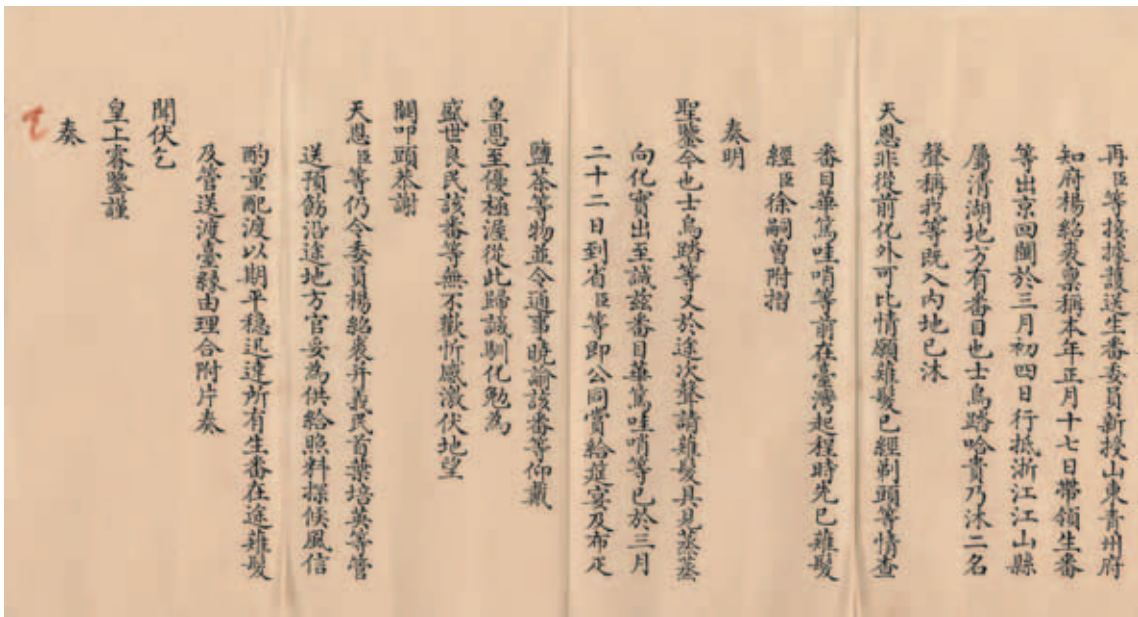 再臣等接據護送生番委員新授山東青州府
知府楊紹裘稟稱本年正月十七日帶領生番
等出京回閩於三月初四日行抵浙江江山縣
屬清湖地方有番目也士烏踏哈貴乃沐二名
聲稱我等既入內地已沐
天恩非從前化外可比情願薙髮已經剃頭等情查
番目華篤哇哨等前在臺灣起程時先已薙髮
經臣徐嗣曾附摺
奏明
聖鑒今也士烏踏等又於途次聲請薙髮具見蒸蒸
向化實出至誠茲番目華篤哇哨等已於三月
二十二日到省臣等即公同賞給筵宴及布疋
鹽茶等物並令通事曉諭該番等仰戴
皇恩至優極渥從此歸誠馴化勉為
盛世良民該番等無不歡忻感激伏地望
闕叩頭恭謝
天恩臣等仍令委員楊紹裘并義民首葉培英等管
送預飭沿途地方官妥為供給照料探候風信
酌量配渡以期平穩迅達所有生番在途薙髮
及管送渡臺緣由理合附片奏
聞伏乞
皇上睿鑒謹
奏